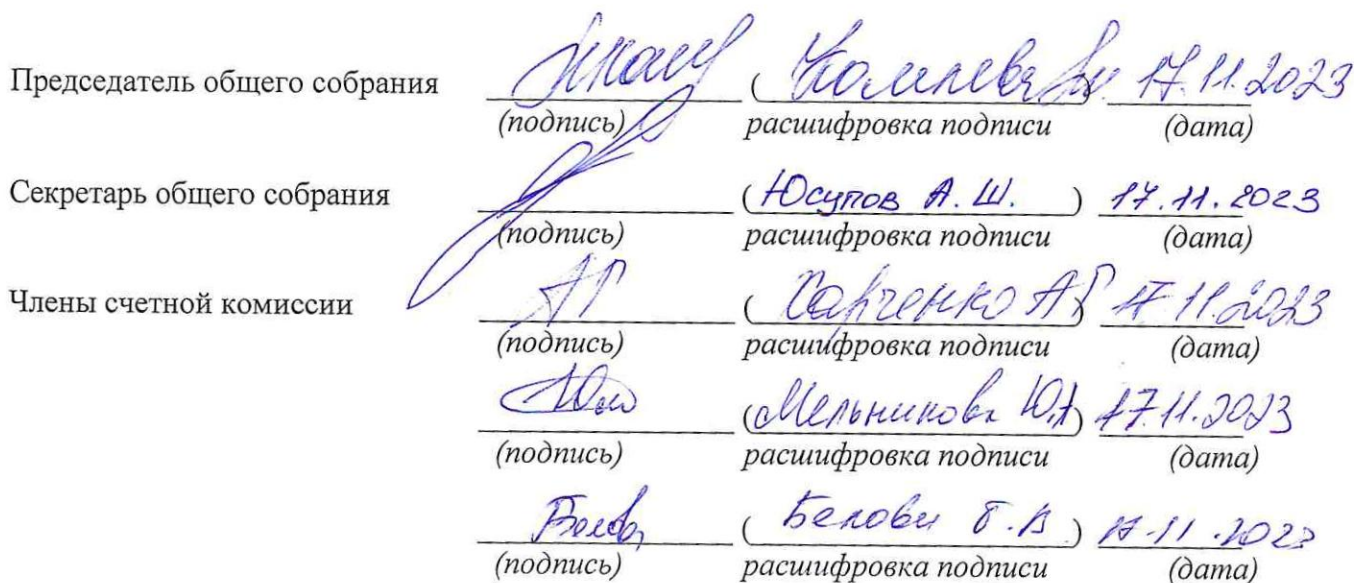 Председатель общего собрания ( 17.11.2023
(подпись) расшифровка подписи (дата)
Секретарь общего собрания (Юсупов А. Ш. ) 17.11.2023
(подпись) расшифровка подписи (дата)
Члены счетной комиссии АГ ( Харченко АГ 17.11.2023
(подпись) расшифровка подписи (дата)
(Мельникова Ю,А) 17.11.2023
(подпись) расшифровка подписи (дата)
( Белова Т.В ) 17.11.2023
(подпись) расшифровка подписи (дата)